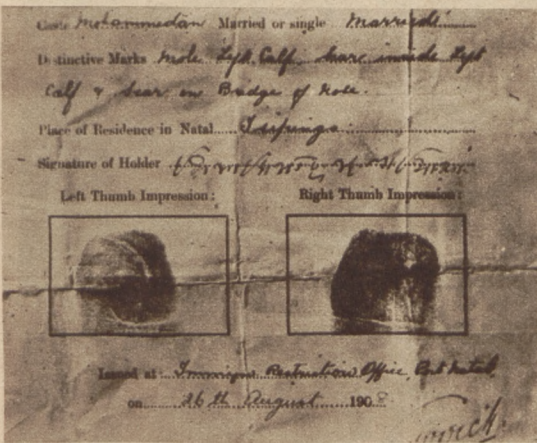 Caste Mohammedan Married or single Married
Distinctive Marks Mole Left Calf, Scar inside Left
Calf & Scar on Bridge of Nose.
Place of Residence in Natal
Signature of Holder
Left Thumb Impression: Right Thumb Impression:
Issued at Immigrn Restriction Office, Port Natal
on 26th August 1908